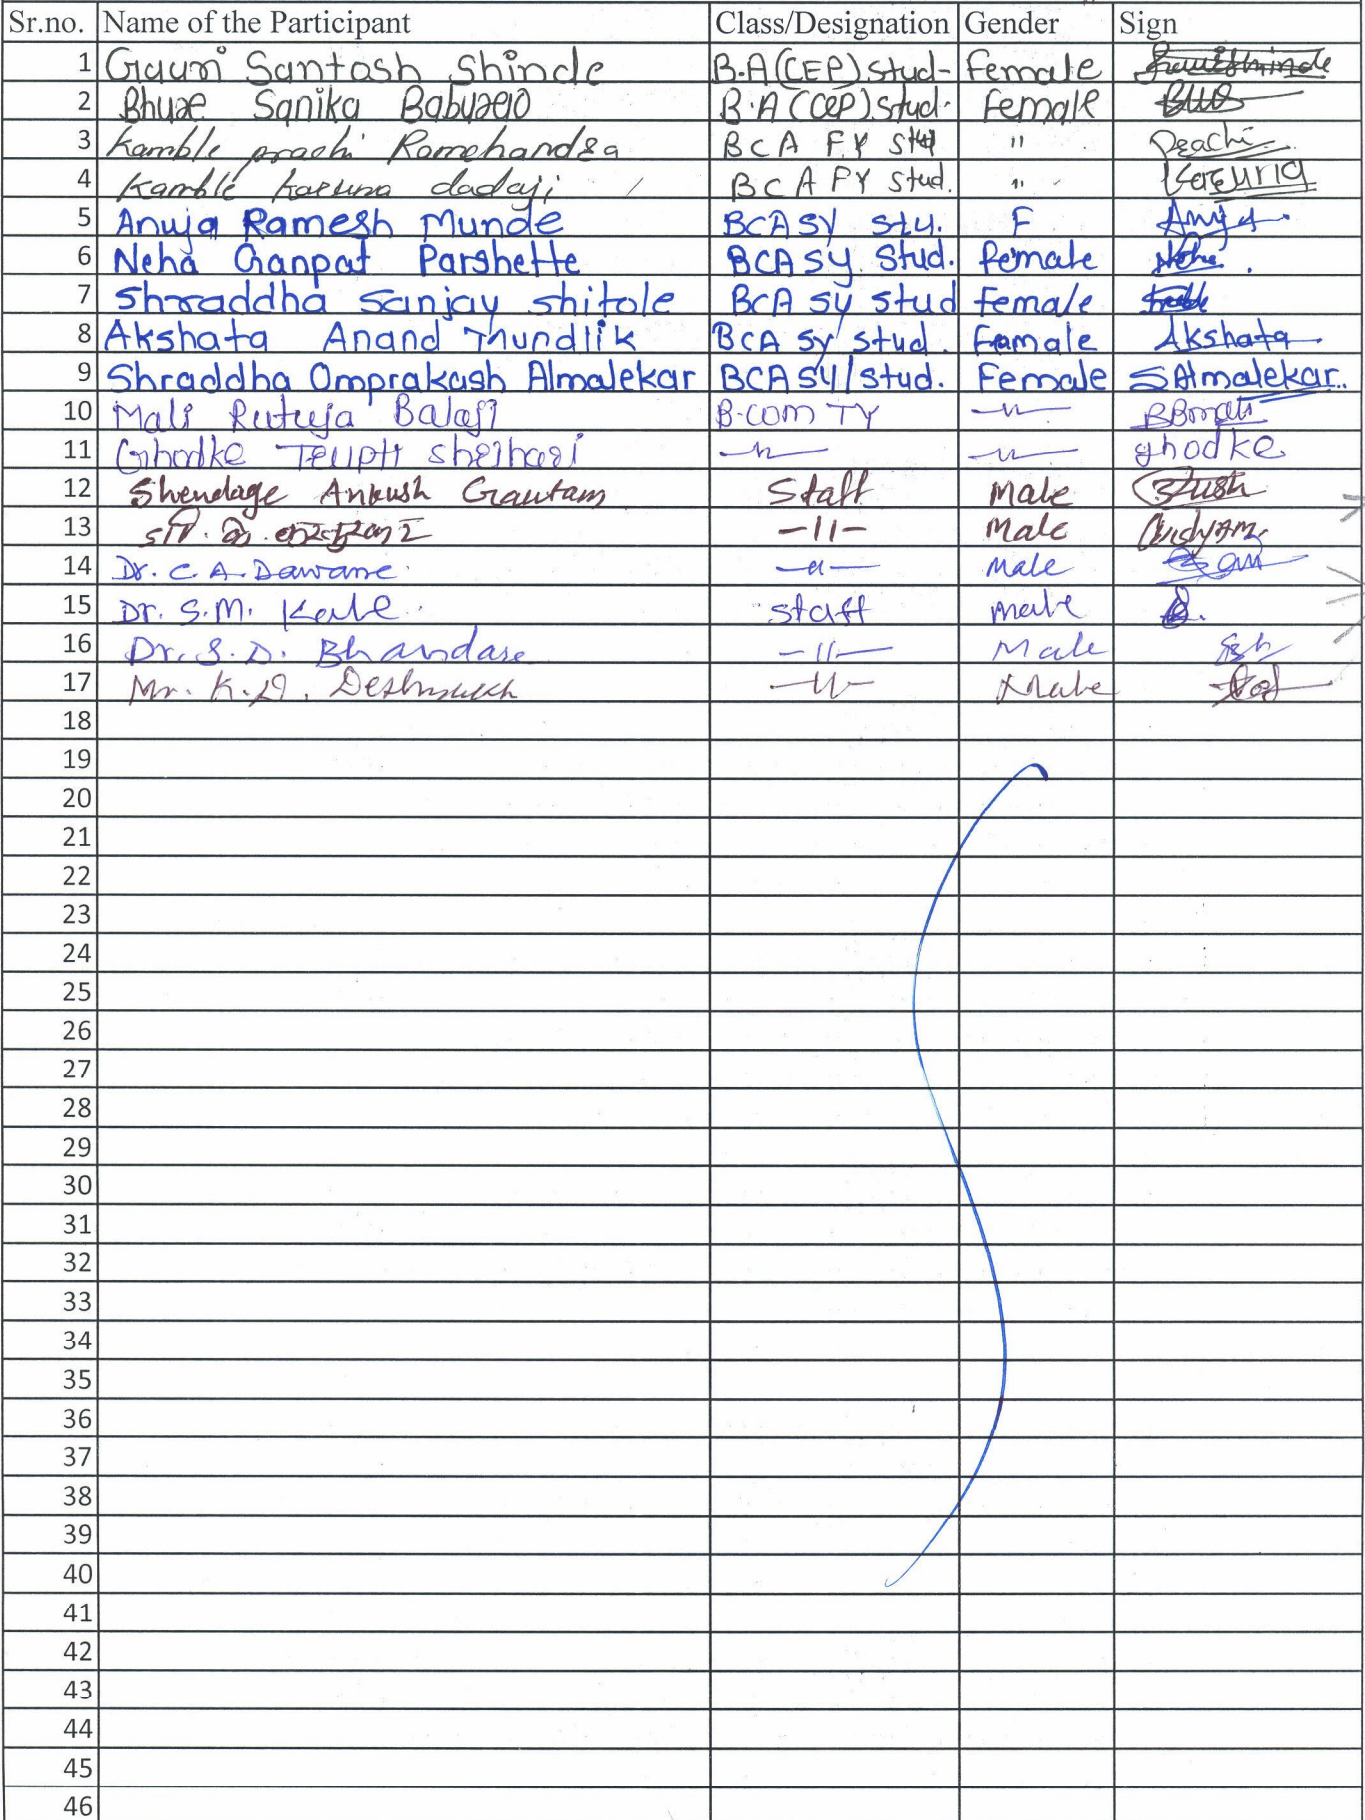 Sr.no. Name of the Participant Class/Designation Gender Sign
1 Gauri Santosh Shinde B.A(CEP)stud- Female
2 Bhure Sanika Baburao B.A(CEP).stud. Female
3 Kamble prachi Ramchandra BCA FY stud " Prachi
4 Kamble karuna dadaji BCA FY stud. " Karuna
5 Anuja Ramesh Munde BCASY stu. F Anuja
6 Neha Ganpat Parshette BCASY Stud. Female Neha
7 Shraddha Sanjay shitole BCA SY stud Female
8 Akshata Anand Mundlik BCA SY stud. Female Akshata
9 Shraddha Omprakash Almalekar BCASY/stud. Female SAlmalekar.
10 Mali Rutuja Balaji B.com TY —〃— RBmali
11 Ghodke Trupti shrihari —〃— —〃— ghodke
12 Shendage Ankush Gautam Staff Male
13 -11- Male
14 Dr. C. A. Dawane —〃— Male
15 Dr. S.M. Kale staff male
16 Dr. S. D. Bhandare -11- Male
17 Mr. K.D. Deshmukh -11- Male
18
19
20
21
22
23
24
25
26
27
28
29
30
31
32
33
34
35
36
37
38
39
40
41
42
43
44
45
46